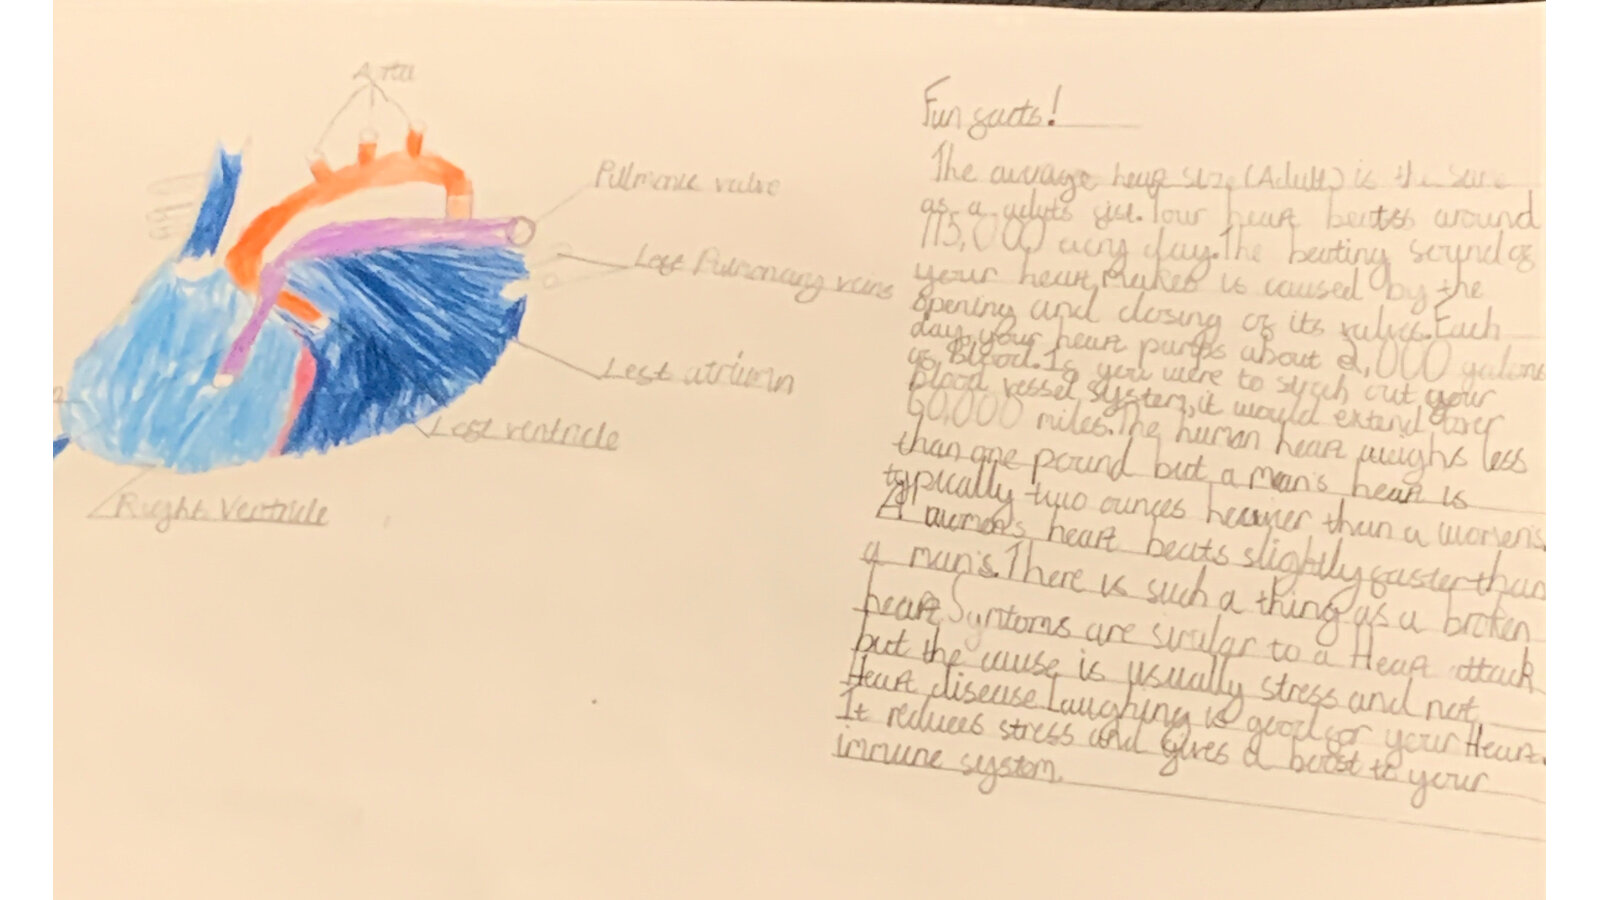 Aorta
Pulmonic valve
Left Pulmonary veins
Left atrium
Left ventricle
Right Ventricle
Fun facts!
The average heart size (Adult) is the same
as a adults fist. Your heart beatss around
115,000 every day. The beating sound of
your heart makes is caused by the
opening and closing of its valves. Each
day, your heart pumps about 2,000 gallons
of Blood. If you were to strech out your
blood vessel system, it would extend over
60,000 miles. The human heart weighs less
than one pound but a man's heart is
typically two ounces heavier than a women's.
A women's heart beats slightly faster than
a man's. There is such a thing as a broken
heart. Symtoms are similar to a Heart attack
but the cause is usually stress and not
Heart disease. Laughing is good for your Heart.
It reduces stress and gives a boost to your
immune system.